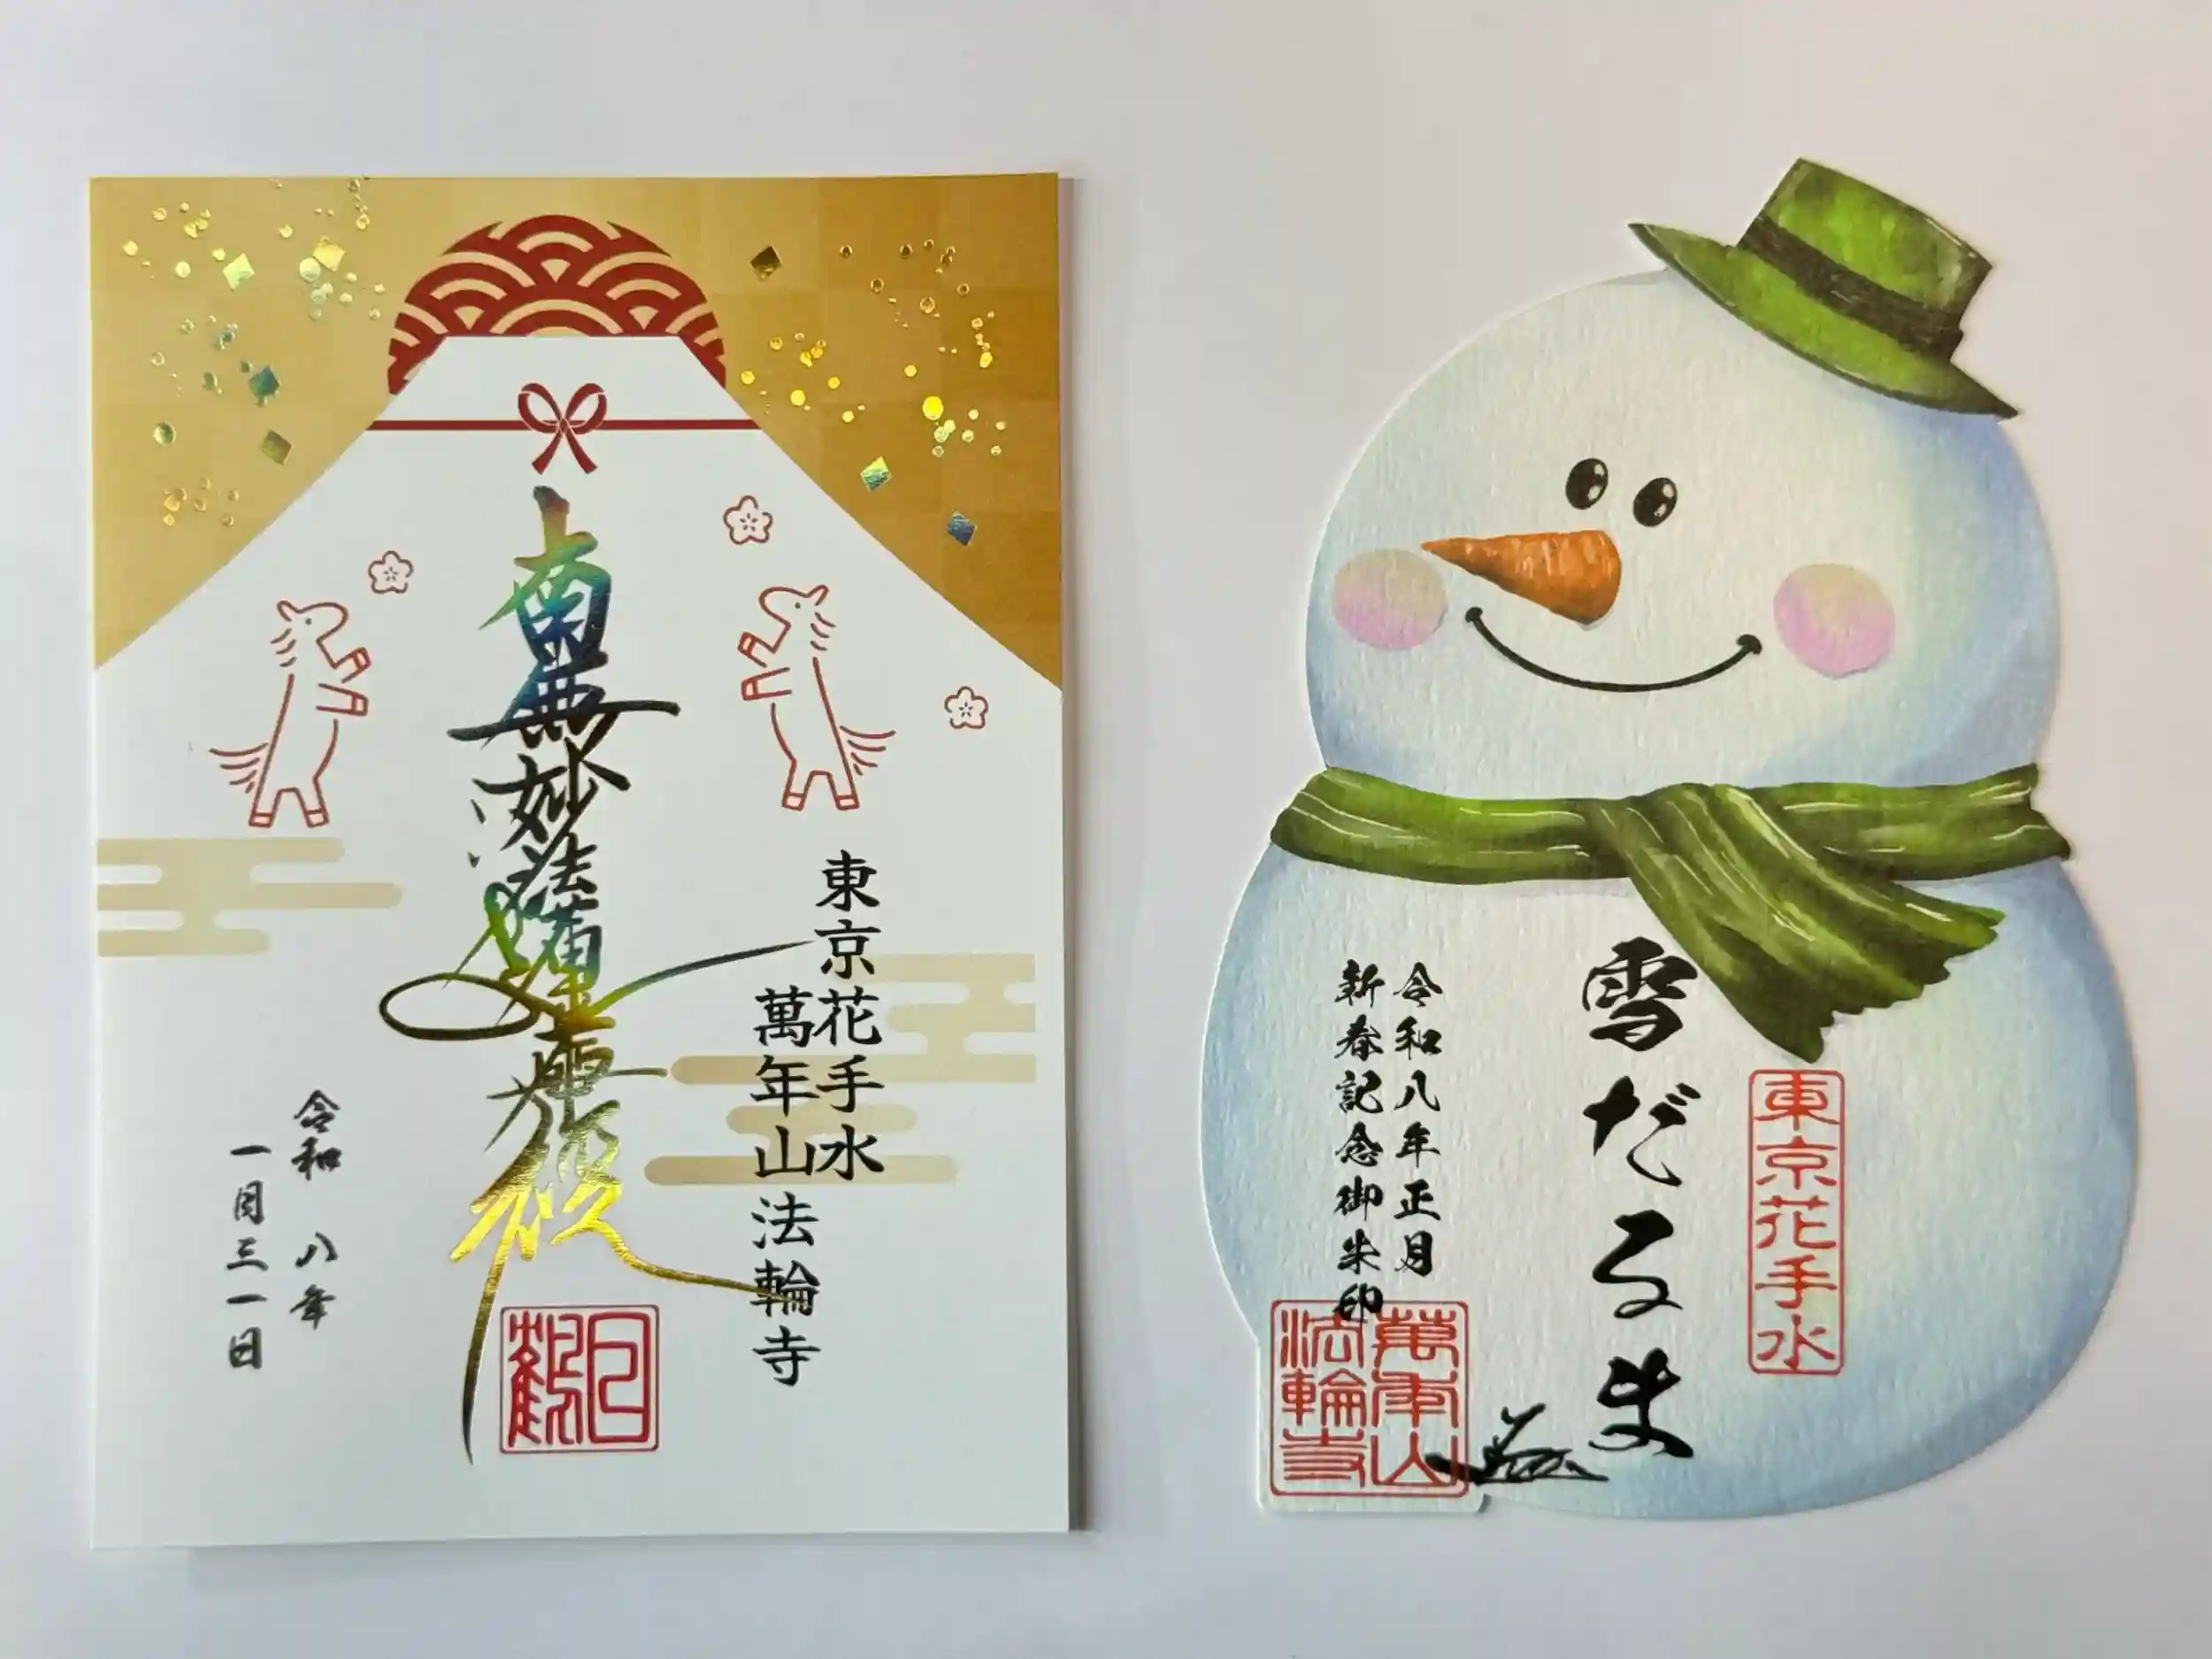 南無妙法蓮華経
東京花手水
萬年山法輪寺
令和 八年
一月三一日
雪だるま
東京花手水
令和八年正月
新春記念御朱印
萬年山
法輪寺